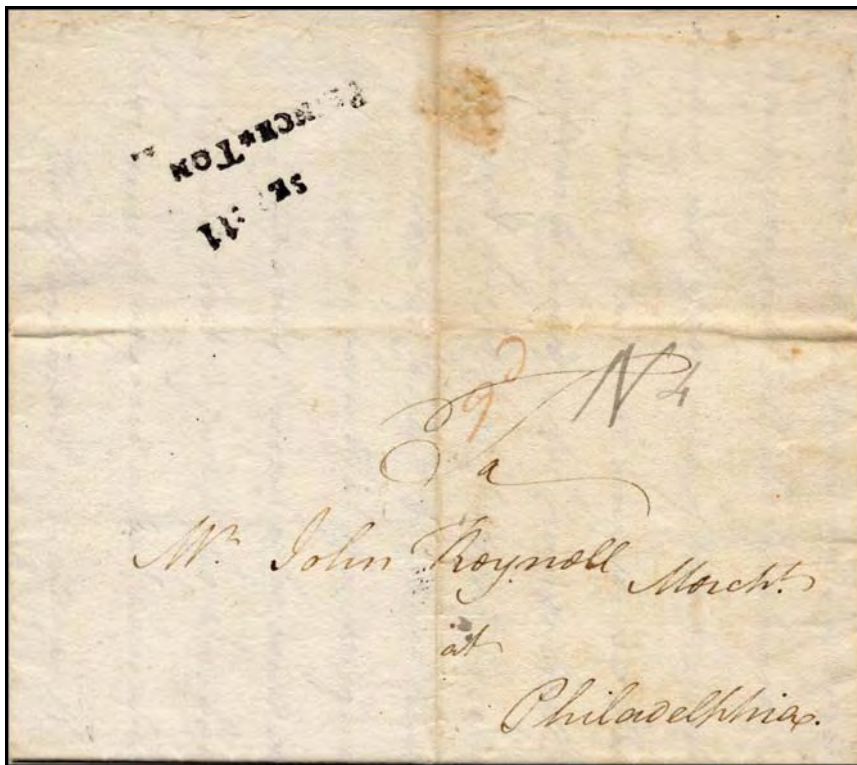 PRINCETON
SEP 11
9d
N 4
To
Mr. John Reynell Mercht.
at
Philadelphia.